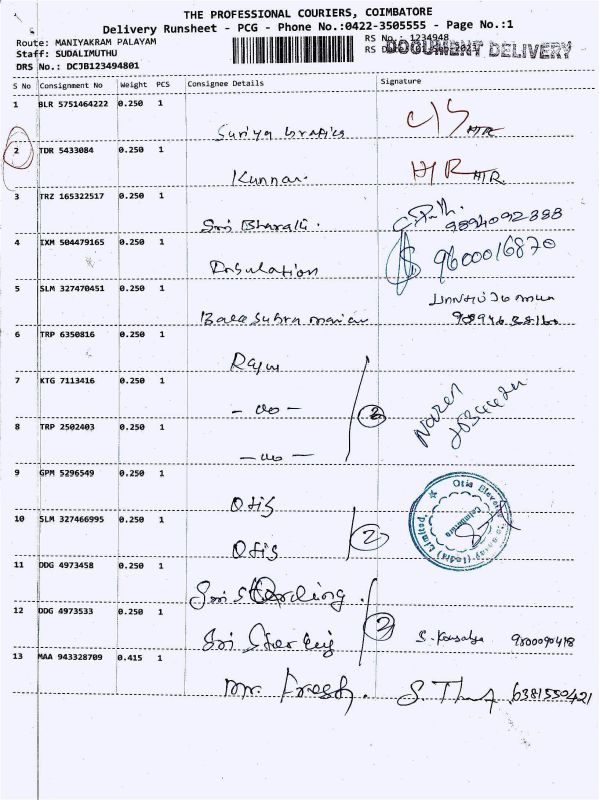 THE PROFESSIONAL COURIERS, COIMBATORE
Delivery Runsheet - PCG - Phone No.:0422-3505555 - Page No.:1
Route: MANIYAKRAM PALAYAM
RS No.: 1234948
Staff: SUDALIMUTHU
RS
DOCUMENT DELIVERY
DRS No.: DCJB123494801
S No Consignment No Weight PCS Consignee Details Signature
1 BLR 5751464222 0.250 1
Suriya Grafics
2 TDR 5433084 0.250 1
Kunnan
3 TRZ 165322517 0.250 1
Sri Bharati. 9894092388
4 IXM 504479165 0.250 1
Insulation 9600016870
5 SLM 327470451 0.250 1
Balasubramanian
6 TRP 6350816 0.250 1
Raju
7 KTG 7113416 0.250 1
- do -
8 TRP 2502403 0.250 1
- do -
9 GPM 5296549 0.250 1
Otis
10 SLM 327466995 0.250 1
Otis 2
11 DDG 4973458 0.250 1
Sri Sterling
12 DDG 4973533 0.250 1
Sri Sterling S. Kousalya
13 MAA 943328709 0.415 1
Mr. Fresh. 6381550421